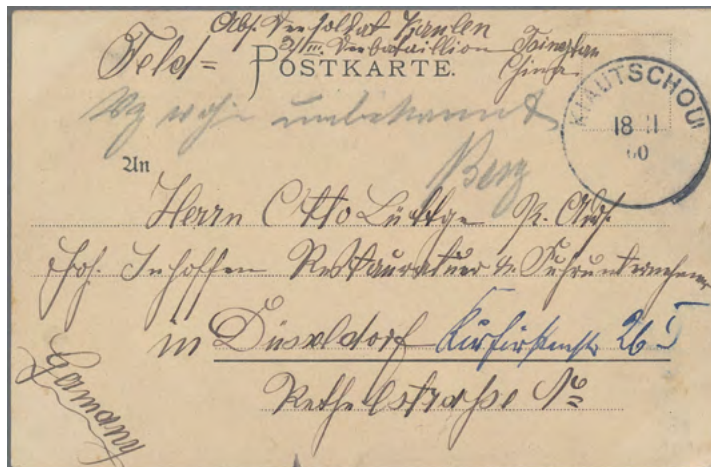 Abs. Seesoldat Kaulen
2/III. Seebataillion Tsingtau
China
Feld=
POSTKARTE.
KIAUTSCHOU
18 11
00
unbekannt
Berg
An
Herrn Otto Lüttge
Joh. Inhoffen Restaurateur & Fuhrunternehmer
in Düsseldorf Kurfürstenstr 26 I
Rethelstrasse No
Gamany